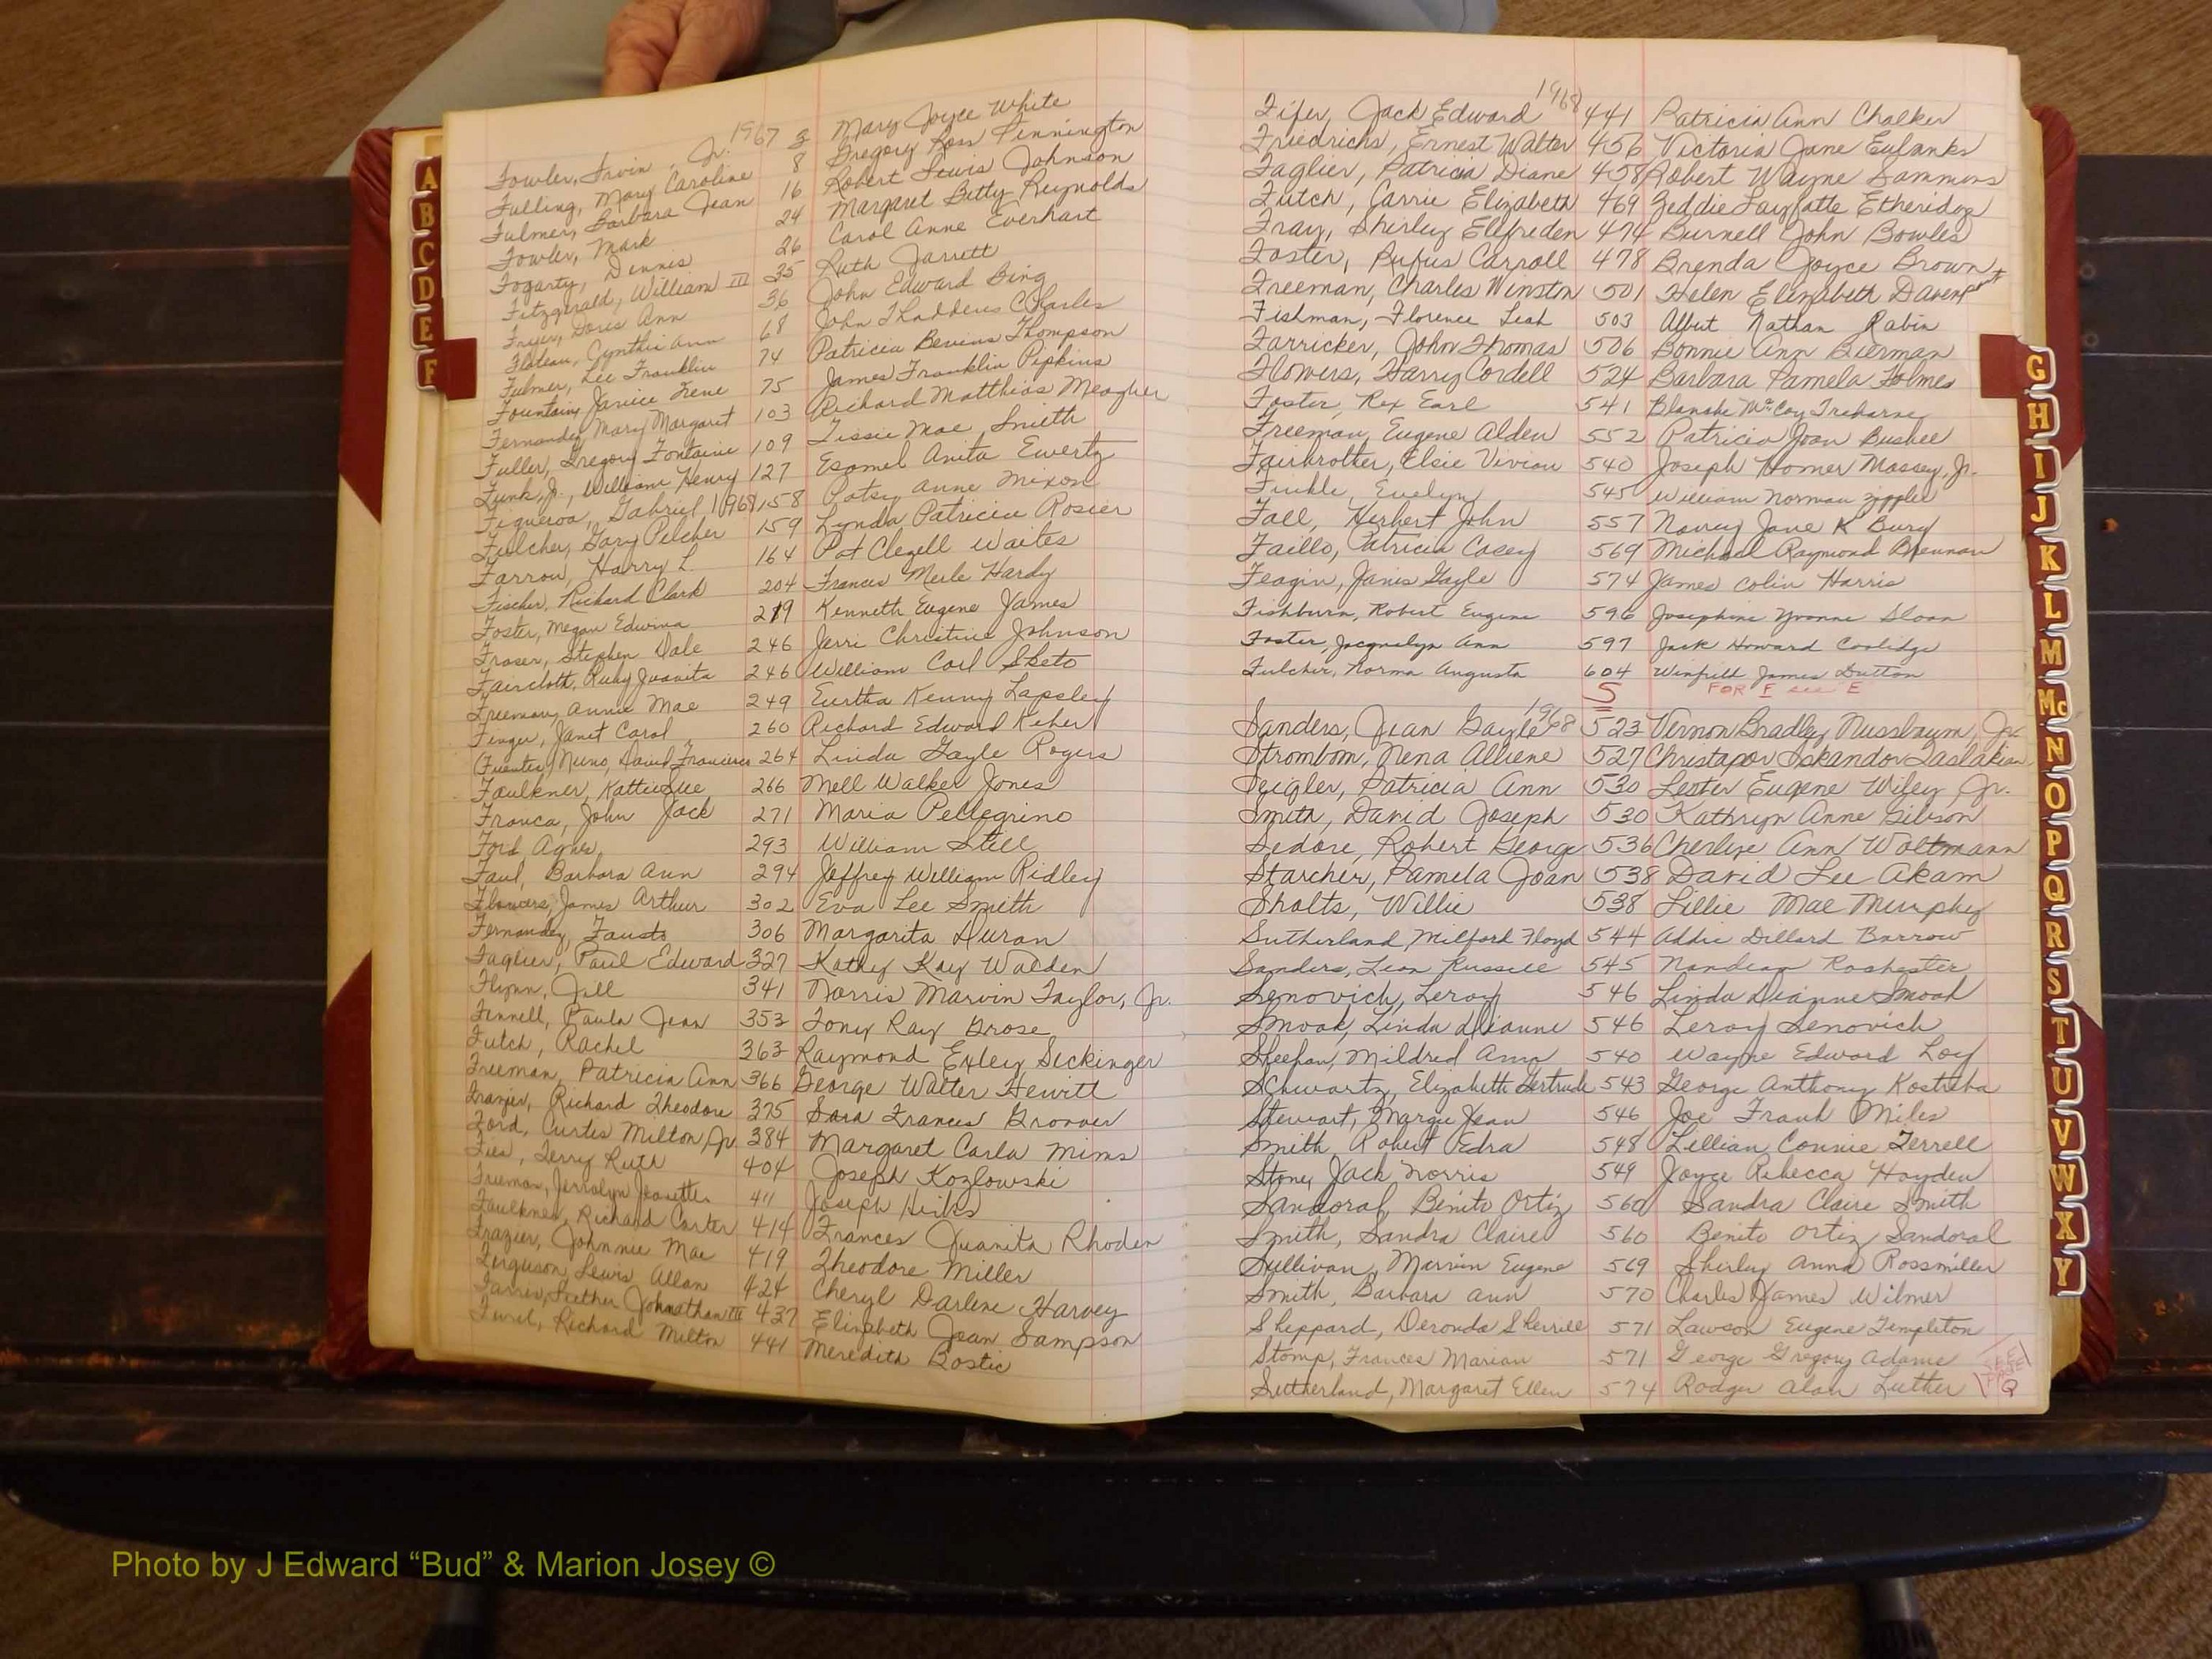 1967
Fowler, Irvin, Jr. 3 Mary Joyce White
Fulling, Mary Caroline 8 Gregory Ross Pennington
Fulmer, Barbara Jean 16 Robert Lewis Johnson
Fowler, Mark 24 Margaret Betty Reynolds
Fogarty, Dennis 26 Carol Anne Everhart
Fitzgerald, William III 35 Ruth Jarrett
Fryer, Doris Ann 36 John Edward Bing
Cynthia Ann 68 John Thaddeus Charles
Fulmer, Lee Franklin 74 Patricia Bevins Thompson
Fountain, Janice Irene 75 James Franklin Pipkins
Fernandez, Mary Margaret 103 Richard Matthias Meagher
Fuller, Gregory Fontaine 109 Tissie Mae Smith
Funk, Jr., William Henry 127 Anita Ewertz
Figueroa, Gabriel 1968 158 Patsy Anne Mixon
Fulcher, Gary Pilcher 159 Lynda Patricia Rosier
Farrow, Harry L. 164 Pat Clezell Waites
Fischer, Richard Clark 204 Frances Merle Hardy
Foster, Megan Edwina 219 Kenneth Eugene James
Fraser, Stephen Dale 246 Jerri Christine Johnson
Faircloth, Ruby Juanita 246 William Carl Sheto
Freeman, Annie Mae 249 Eurtha Kenny Lapsley
Finger, Janet Carol 260 Richard Edward Keher
(Fuentes) Nuno, David Francisco 264 Linda Gayle Rogers
Faulkner, Kattie Sue 266 Mell Walker Jones
Franca, John Jack 271 Maria Pellegrino
Ford, Agnes 293 William Still
Faul, Barbara Ann 294 Jeffrey William Ridley
Flowers, James Arthur 302 Eva Lee Smith
Fernandez, Fausto 306 Margarita Duran
Faglier, Paul Edward 327 Kathy Kay Walden
Flynn, Jill 341 Norris Marvin Taylor, Jr.
Fennell, Paula Jean 353 Tony Ray Grose
Futch, Rachel 363 Raymond Exley Seckinger
Freeman, Patricia Ann 366 George Walter Hewitt
Frazier, Richard Theodore 375 Sara Frances Groover
Ford, Curtis Milton, Jr. 384 Margaret Carla Mims
Terry Ruth 404 Joseph Kozlowski
Freeman, Jerralyn Jeanette 411 Joseph
Faulkner, Richard Carter 414 Frances Juanita Rhoden
Frazier, Johnnie Mae 419 Theodore Miller
Ferguson, Lewis Allan 424 Cheryl Darlene Harvey
Luther Johnathan III 437 Elizabeth Jean Sampson
Richard Milton 441 Meredith Bostic
1968
Fifer, Jack Edward 441 Patricia Ann Chalker
Friedrichs, Ernest Walter 456 Victoria Jane Eubanks
Faglier, Patricia Diane 458 Robert Wayne Sammons
Futch, Carrie Elizabeth 469 Zeddie Fayfatte Etheridge
Fray, Shirley Elfreden 474 Burnell John Bowles
Foster, Rufus Carroll 478 Brenda Joyce Brown
Freeman, Charles Winston 501 Helen Elizabeth Davenport
Fishman, Florence Leah 503 Albert Nathan Rabin
Farricker, John Thomas 506 Bonnie Ann Bierman
Flowers, Harry Cordell 524 Barbara Pamela Holmes
Foster, Rex Earl 541 Blanche McCoy Treharne
Freeman, Eugene Alden 552 Patricia Joan Busbee
Fairbrother, Elsie Vivian 540 Joseph Homer Massey, Jr.
Evelyn 545 William Norman
Fall, Herbert John 557 Nancy Jane K Bury
Faillo, Patricia Casey 569 Michael Raymond Brennan
Feagin, Janis Gayle 574 James Colin Harris
Fishburn, Robert Eugene 596 Josephine Yvonne Sloan
Foster, Jacquelyn Ann 597 Jack Howard Coolidge
Fulcher, Norma Augusta 604 Winfield James Dutton
S FOR F see E
1968
Sanders, Jean Gayle 523 Vernon Bradley Nussbaum, Jr.
Strombom, Nena Alliene 527 Christapor Iskandor Taslakian
Seigler, Patricia Ann 530 Lester Eugene Wiley, Jr.
Smith, David Joseph 530 Kathryn Anne Gibson
Sedore, Robert George 536 Cherlyn Ann Woltmann
Starcher, Pamela Joan 538 David Lee Akam
Sholts, Willie 538 Lillie Mae Murphy
Sutherland, Milford Floyd 544 Addie Dillard Barrow
Sanders, Leon Russell 545 Nandean Rochester
Senovich, Leroy 546 Linda Dianne Smoak
Smoak, Linda Dianne 546 Leroy Senovich
Sheehan, Mildred Amy 540 Wayne Edward Loy
Schwartz, Elizabeth Gertrude 543 George Anthony Kostreba
Stewart, Margie Jean 546 Joe Frank Miles
Smith, Robert Edra 548 Lillian Connie Terrell
Stone, Jack Norris 549 Joyce Rebecca Hayden
Sandoral, Benito Ortiz 560 Sandra Claire Smith
Smith, Sandra Claire 560 Benito Ortiz Sandoral
Sullivan, Marvin Eugene 569 Shirley Anna Rossmiller
Smith, Barbara Ann 570 Charles James Wilmer
Sheppard, Deronda Sherrill 571 Lawson Eugene Templeton
Stomp, Frances Marian 571 George Gregory Adams
Sutherland, Margaret Ellen 574 Rodger Alan Luther
SEE PAGE Q
A
B
C
D
E
F
G
H
I
J
K
L
M
Mc
N
O
P
Q
R
S
T
U
V
W
X
Y
Photo by J Edward “Bud” & Marion Josey ©